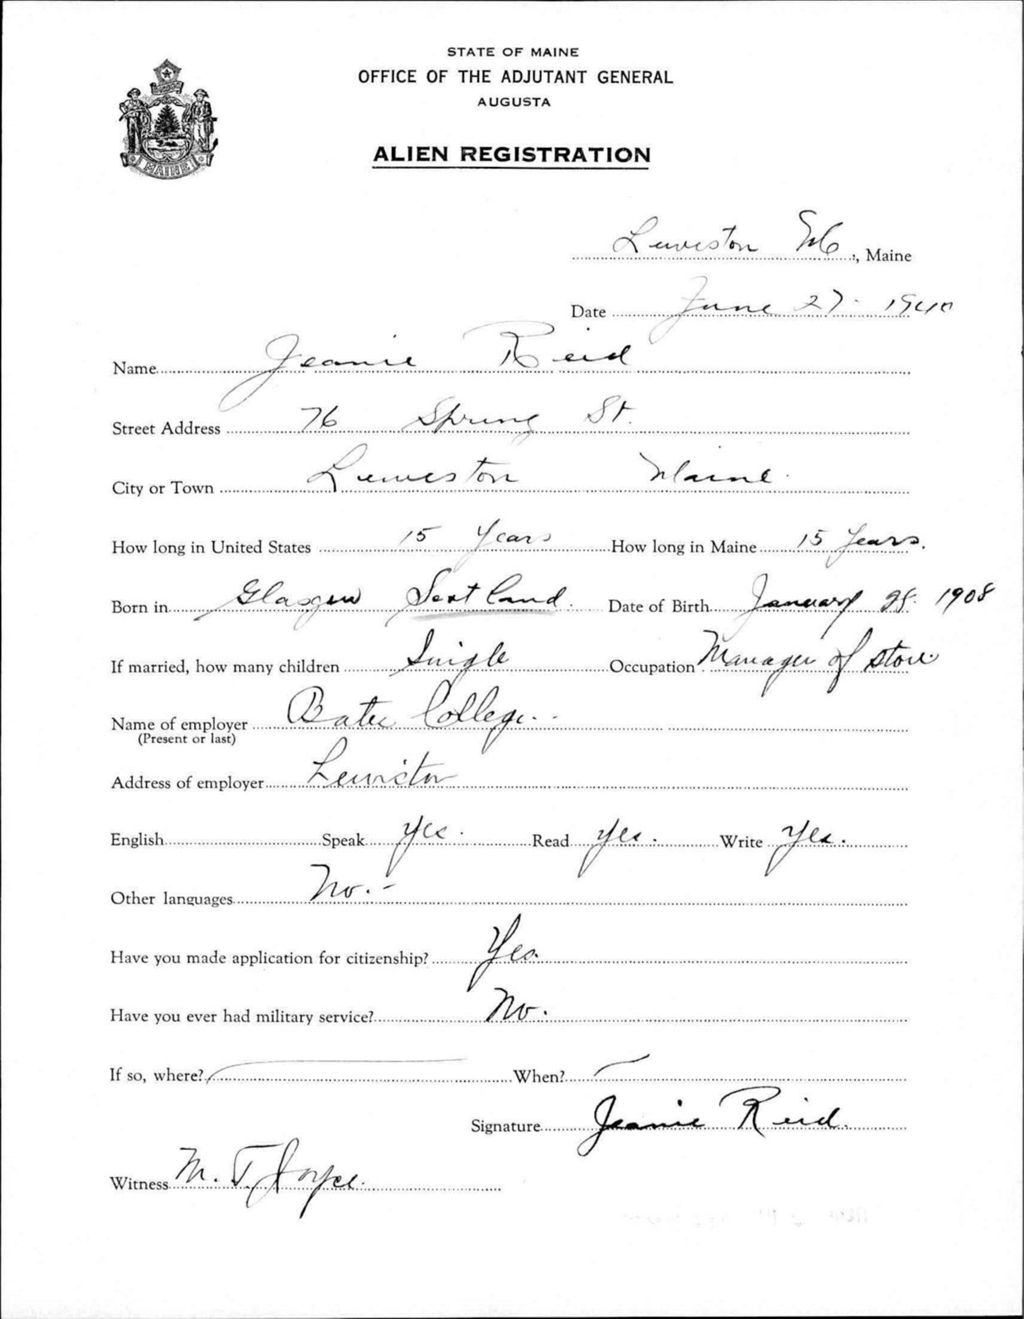 STATE OF MAINE
OFFICE OF THE ADJUTANT GENERAL
AUGUSTA
ALIEN REGISTRATION
MAINE
Lewiston Me, Maine
Date June 27 - 1940
Name Jeanie Reid
Street Address 76 Spring St.
City or Town Lewiston Maine.
How long in United States 15 Years How long in Maine 15 Years.
Born in Glasgow Scotland. Date of Birth January 28. 1908
If married, how many children Single Occupation Manager of store.
Name of employer Bates College.
(Present or last)
Address of employer Lewiston
English Speak yes. Read yes. Write yes.
Other languages No. -
Have you made application for citizenship? Yes.
Have you ever had military service? No.
If so, where? When?
Signature Jeanie Reid.
Witness M. T. Joyce.